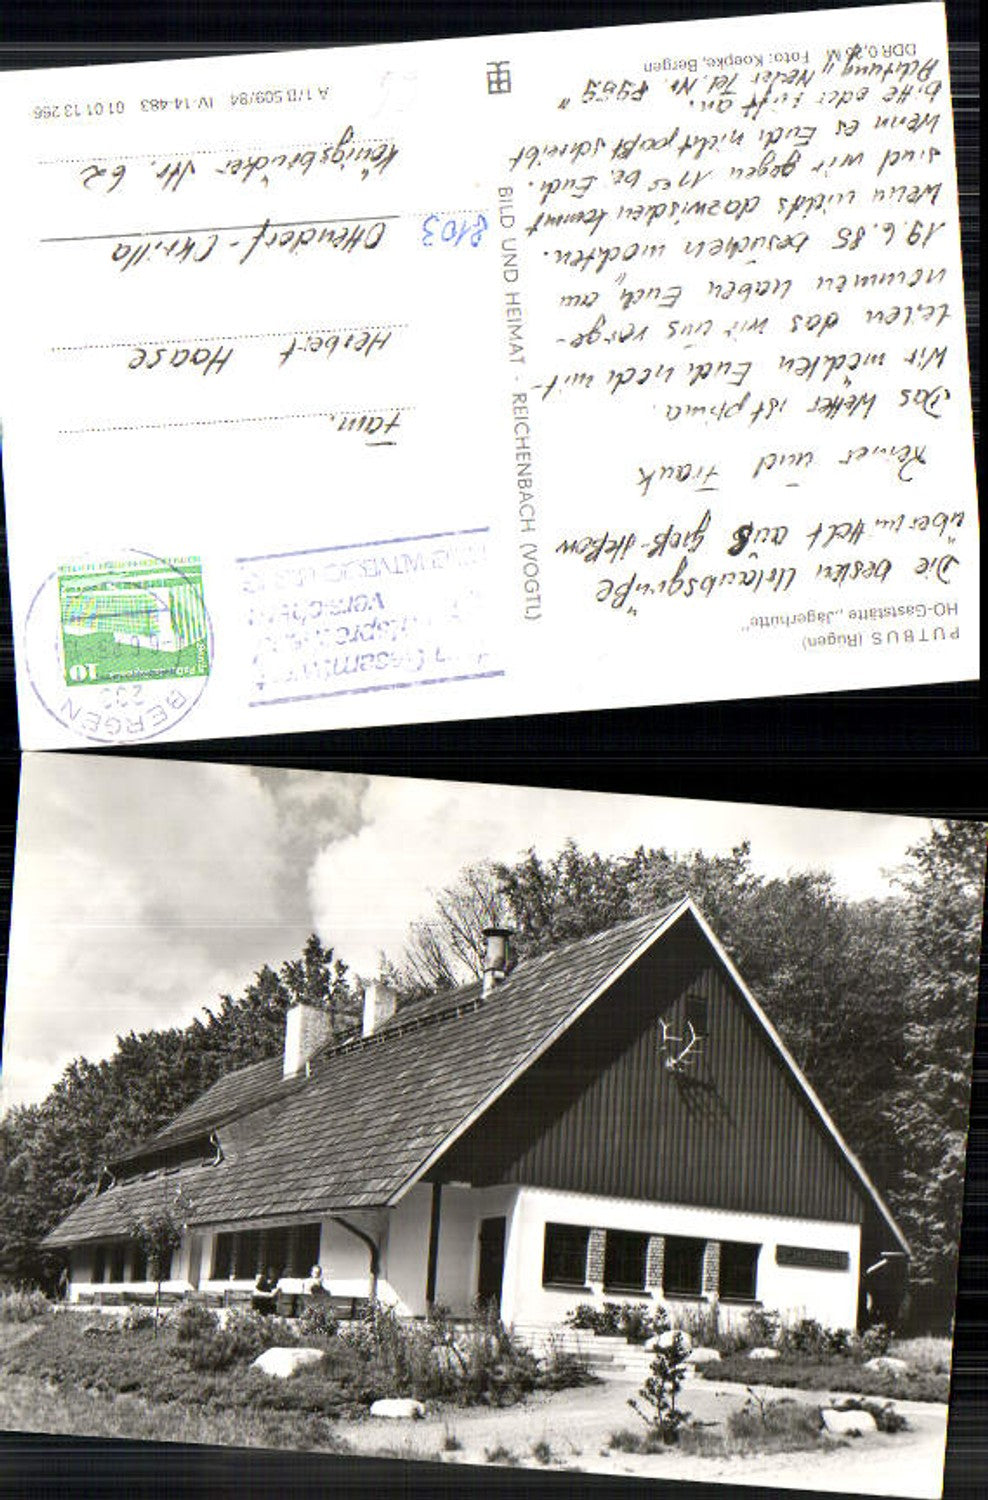 PUTBUS (Rügen)
HO-Gaststätte „Jägerhütte"
Die besten Urlaubsgrüße
übermittelt aus
Reiner und Frank
Das Wetter ist prima.
Wir möchten Euch noch mit-
teilen das wir uns vorge-
nommen haben Euch, am
19.6.85 besuchen möchten.
Wenn nichts dazwischen kommt
sind wir gegen bei Euch.
Wenn es Euch nicht paßt schreibt
bitte oder ruft an.
Achtung „Neue Tel. Nr.
DDR 0,25 M Foto: Koepke, Bergen
BILD UND HEIMAT · REICHENBACH (VOGTL)
BERGEN
10
DDR
Fam.
Herbert Haase
8103 Ottendorf-Okrilla
Königsbrücker Str. 62
A 1/B 509/84 IV-14-483 01 01 13 266